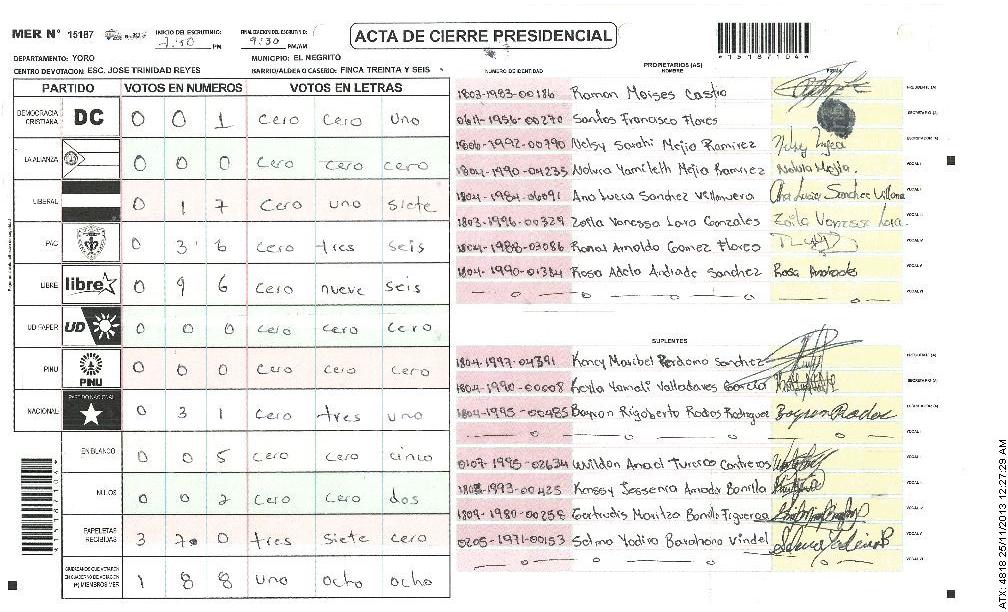 MER N° 15187 INICIO DEL ESCRUTINIO: PM FINALIZACION DEL ESCRUTINIO: 9:30 PM/AM
ACTA DE CIERRE PRESIDENCIAL
*15187104*
DEPARTAMENTO: YORO MUNICIPIO: EL NEGRITO
CENTRO DE VOTACION: ESC. JOSE TRINIDAD REYES BARRIO/ALDEA O CASERIO: FINCA TREINTA Y SEIS
PARTIDO VOTOS EN NUMEROS VOTOS EN LETRAS
DEMOCRACIA CRISTIANA DC 0 0 1 Cero Cero Uno
LA ALIANZA 0 0 0 Cero Cero Cero
LIBERAL 0 1 7 Cero uno siete
PAC 0 3 6 Cero tres seis
LIBRE libre 0 9 6 Cero nueve seis
UD FAPER UD 0 0 0 Cero Cero Cero
PINU PINU 0 0 0 Cero Cero Cero
NACIONAL PARTIDO NACIONAL 0 3 1 Cero tres uno
EN BLANCO 0 0 5 Cero Cero cinco
NULOS 0 0 2 Cero Cero dos
PAPELETAS RECIBIDAS 3 7 0 tres siete cero
CIUDADANOS QUE VOTARON EN CUADERNO DE VOTACION (+) MIEMBROS MER 1 8 8 uno ocho ocho
PROPIETARIOS (AS)
NUMERO DE IDENTIDAD NOMBRE FIRMA
1803-1983-00186 Ramon Moises Castro PRESIDENTE (A)
0611-1956-00270 Santos Francisco Flores SECRETARIO (A)
1806-1992-00790 Nelsy Sarahi Mejia Ramirez ESCRUTADOR (A)
1804-1990-04235 Nolvia Yamileth Mejia Ramirez Nolvia Mejia. VOCAL I
1804-1984-06091 Ana Lucia Sanchez Villanueva Ana Lucia Sanchez Villanu VOCAL II
1803-1996-00329 Zoila Vanessa Lara Gonzales Zoila Vanessa Lara. VOCAL III
1804-1988-03086 Ronal Arnoldo Gomez Flores VOCAL IV
1804-1990-01384 Rosa Adela Andrade Sanchez Rosa Andrade VOCAL V
VOCAL VI
SUPLENTES
1804-1997-04391 Kency Maribel Perdomo Sanchez PRESIDENTE (A)
1804-1990-00608 Keyla Yamali Valladares Garcia SECRETARIO (A)
1804-1995-00485 Bayron Rigoberto Rodos Rodriguez Bayron Rodos ESCRUTADOR (A)
VOCAL I
0107-1995-02634 Wildon Anael Turcios Contreras
1803-1993-00425 Kenssy Jessenia Amador Bonilla
1804-1980-00258 Gertrudis Maritza Bonilla Figueroa
0205-1971-00153 Selma Yadira Barahona Vindel
VOCAL VI
ATX: 4818 25/11/2013 12:27:29 AM